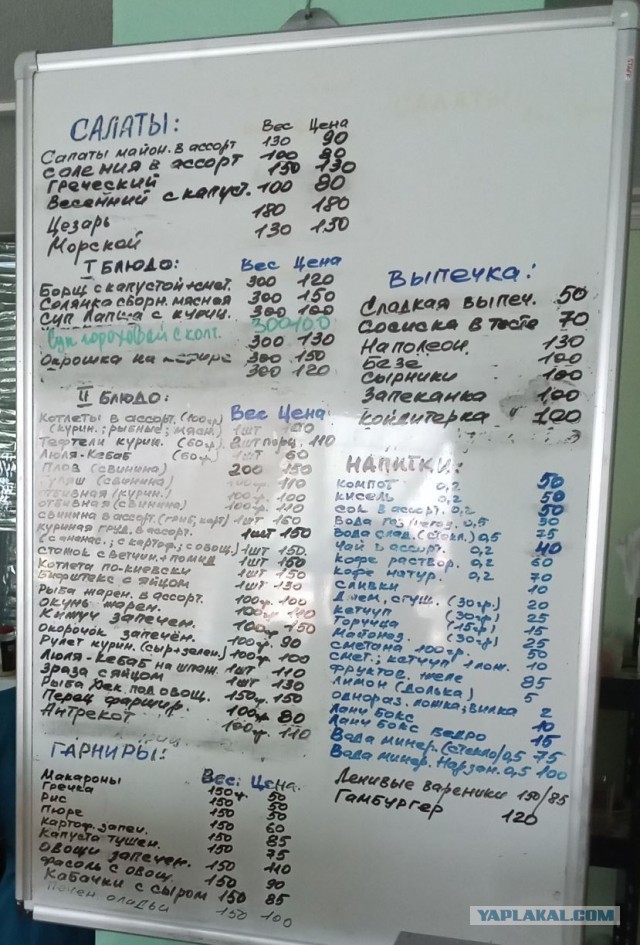 САЛАТЫ: Вес Цена
Салаты майон. в ассорт 130 90
соления в ассорт 100 80
Греческий 150 130
Весенний с капуст. 100 80
Цезарь 180 180
Морской 130 150
I БЛЮДО: Вес Цена
Борщ с капустой+смет. 300 120
Солянка сборн. мясная 300 150
Суп Лапша с куриц. 300 100
Суп гороховый с копч. 300 100
300 130
Окрошка на 300 150
300 120
II БЛЮДО: Вес Цена
Котлеты в ассорт. (100гр)
(курин.; рыбные; мясн.) 1шт 100
Тефтели курин. (60гр.) 2шт порц. 110
Люля-кебаб (60гр.) 1шт 60
Плов (свинина) 200 150
Гуляш (свинина) 110
отбивная (курин.) 100гр. 100
отбивная (свинина) 100гр. 110
свинина в ассорт. (гриб, карт) 1шт 150
куриная груд. в ассорт.
(с ананас.; с картоф.; с овощ.) 1шт 150
стожок с ветчин.+помид 1шт 150
Котлета по-киевски 1шт 150
Бифштекс с яйцом 1шт 130
Рыба жарен. в ассорт. 100гр. 100
Окунь жарен. 100гр. 110
Кижуч запечен. 100гр. 150
Окорочок запечён. 100гр. 90
Рулет курин. (сыр+зелен.) 100гр. 100
Люля-Кебаб на шпаж. 1шт 110
зраза с яйцом 1шт 130
Рыба под овощ. 150гр. 150
Перец фаршир. 100гр 80
Антрекот 100гр. 110
ГАРНИРЫ: Вес. Цена.
Макароны 150гр. 50
Гречка 150 50
Рис 150 50
Пюре 150 60
Картоф. запеч. 150 85
Капуста тушен. 75
Овощи запечен. 150 110
Фасоль с овощ. 150 90
Кабачки с сыром 150 85
Печен. оладьи 150 100
ВЫПЕЧКА:
Сладкая выпеч. 50
Сосиска в тесте 70
Наполеон 130
Безе 100
Сырники 100
Запеканка 100
Кондитерка 100
НАПИТКИ:
компот 0,2 50
кисель 0,2 50
сок в ассорт. 0,2 50
Вода газ, негаз. 0,5 30
Вода слад. (стекл.) 0,5 75
Чай в ассорт. 0,2 40
Кофе раствор. 0,2 60
Кофе натур. 0,2 70
Сливки 10
Джем, сгущ. (30гр.) 20
кетчуп (30гр.) 25
Горчица (15гр.) 15
Майонез (30гр.) 25
сметана 100гр. 50
смет.; кетчуп 1 лож. 10
фруктов. желе 85
Лимон (долька) 5
однораз. ложка; вилка 2
Ланч бокс 10
Ланч бокс ведро 15
Вода минер. (стекло) 0,5 75
Вода минер. Нарзан. 0,5 100
Ленивые вареники 150/85
Гамбургер 120
YAPLAKAL.COM